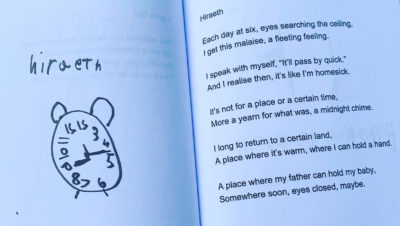 hiraeth
Hiraeth
Each day at six, eyes searching the ceiling,
I get this malaise, a fleeting feeling.
I speak with myself, "It'll pass by quick."
And I realise then, it's like I'm homesick.
It's not for a place or a certain time,
More a yearn for what was, a midnight chime.
I long to return to a certain land,
A place where it's warm, where I can hold a hand.
A place where my father can hold my baby,
Somewhere soon, eyes closed, maybe.